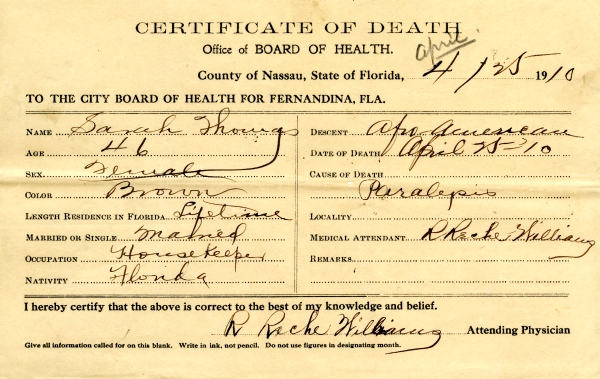 CERTIFICATE OF DEATH
Office of BOARD OF HEALTH.
April.
County of Nassau, State of Florida, 4/25 1910
TO THE CITY BOARD OF HEALTH FOR FERNANDINA, FLA.
NAME Sarah Thomas
AGE 46
SEX Female
COLOR Brown
LENGTH RESIDENCE IN FLORIDA Lifetime
MARRIED OR SINGLE Married
OCCUPATION Housekeeper
NATIVITY Florida
DESCENT Afro American
DATE OF DEATH April 25-10
CAUSE OF DEATH
Paralepsis
LOCALITY
MEDICAL ATTENDANT R Reche Williams
REMARKS
I hereby certify that the above is correct to the best of my knowledge and belief.
R Reche Williams Attending Physician
Give all information called for on this blank. Write in ink, not pencil. Do not use figures in designating month.